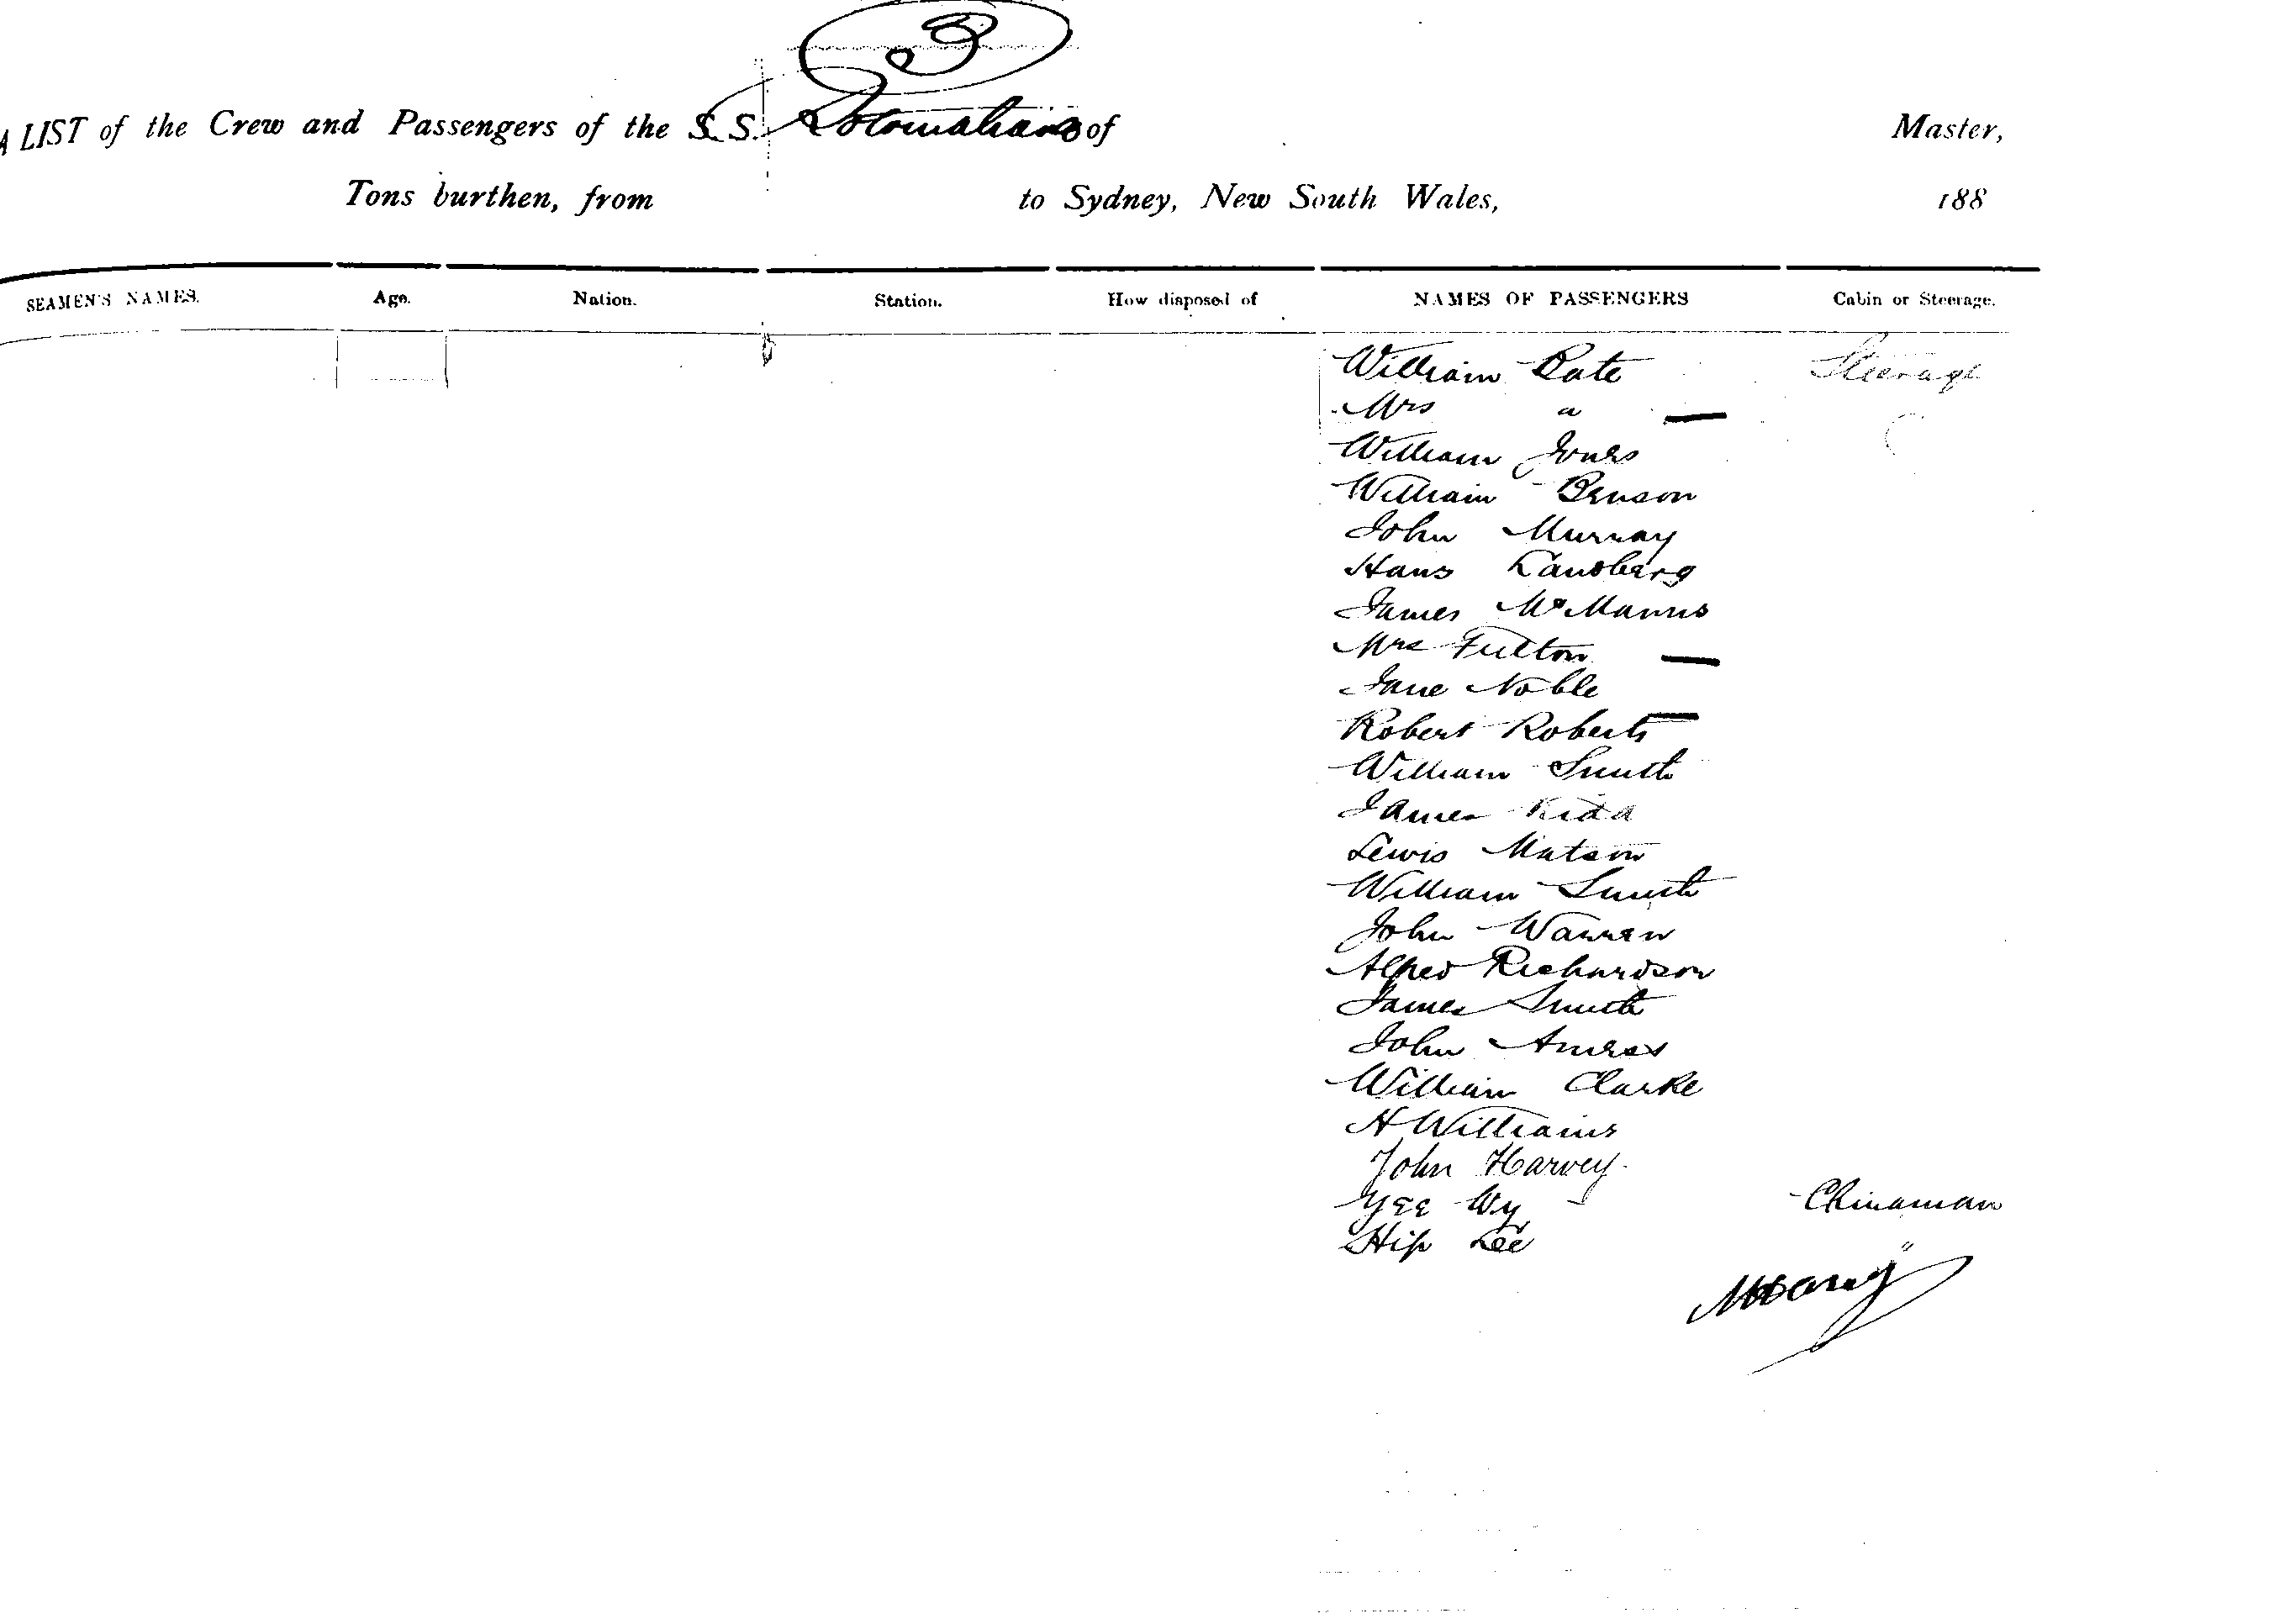 3
A LIST of the Crew and Passengers of the S.S. Rotomahana of Master,
Tons burthen, from to Sydney, New South Wales, 188
SEAMEN'S NAMES. Age. Nation. Station. How disposed of NAMES OF PASSENGERS Cabin or Steerage.
William Rate Steerage
Mrs "
William Jones
William Benson
John Murray
Hans Landberg
James McManus
Mrs Fulton
Jane Noble
Robert Roberts
William Smith
James Kidd
Lewis Matson
William Smith
John Warren
Alfred Richardson
James Smith
John
William Clarke
H Williams
John Harvey.
Yee Wy Chinaman
Hip Lee "